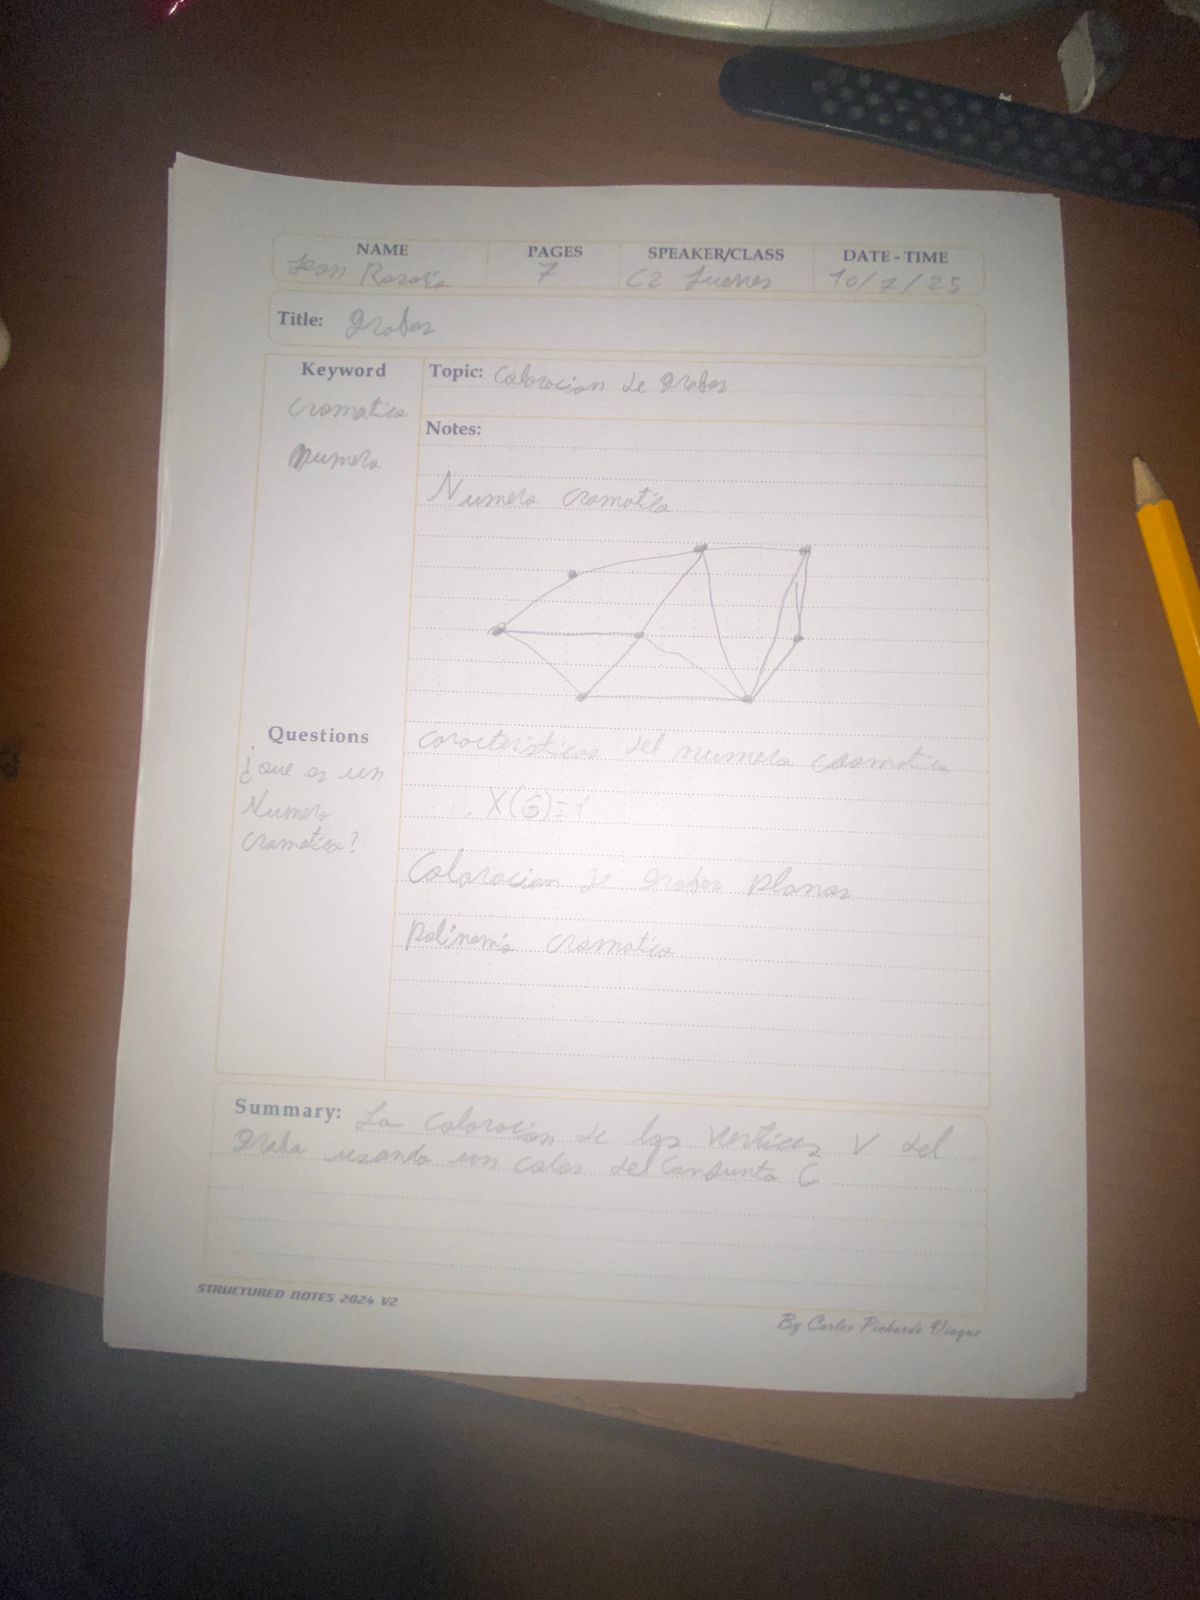 NAME PAGES SPEAKER/CLASS DATE - TIME
Jean 7 C2 Jueves 10/7/25
Title: Grafos
Keyword
cromatico
numero
Topic: Coloracion de grafos
Notes:
Numero cromatico
Questions
¿que es un
Numero
cromatico?
caracteristicas del numero cromatico
X(G)=1
Coloracion de grafos planos
polinomio cromatico
Summary: La coloracion de los vertices V del
grafo usando un color del conjunto C
STRUCTURED NOTES 2024 V2
By Carlos Pichardo Viuque